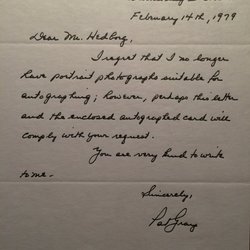 February 14th, 1979
Dear Mr. Hedborg,
I regret that I no longer
have portrait photographs suitable for
autographing; however, perhaps this letter
and the enclosed autographed card will
comply with your request.
You are very kind to write
to me.
Sincerely,
Pat Gray